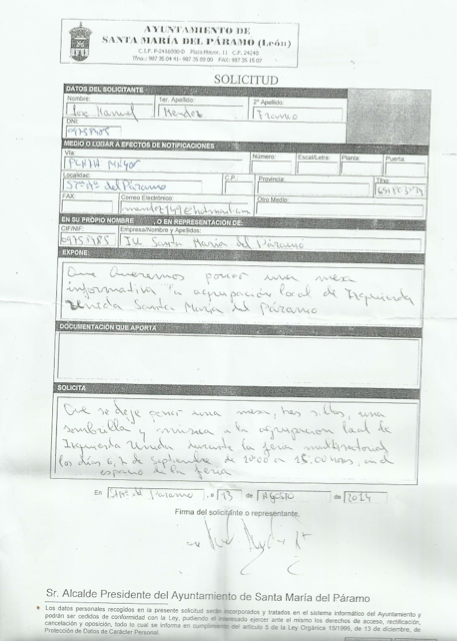 AYUNTAMIENTO DE
SANTA MARÍA DEL PÁRAMO (León)
C.I.F. P-2416000-D Plaza Mayor, 11 C.P. 24240
SOLICITUD
DATOS DEL SOLICITANTE
Nombre: 1er. Apellido: 2º Apellido:
Jose Manuel Mendez Franco
DNI:
MEDIO O LUGAR A EFECTOS DE NOTIFICACIONES
Vía: Número: Escal/Letra: Planta: Puerta
Plaza Mayor
Localidad: C.P. Provincia: Tfno:
Stª Mª del Páramo
FAX: Correo Electrónico: Otro Medio:
EN SU PROPIO NOMBRE , O EN REPRESENTACIÓN DE:
CIF/NIF: Empresa/Nombre y Apellidos:
IU Santa María del Páramo
EXPONE:
Que Queremos poner una mesa
informativa la agrupación local de Izquierda
Unida Santa María del Páramo
DOCUMENTACIÓN QUE APORTA
SOLICITA
Que se deje poner una mesa, tres sillas, una
sombrilla y musica a la agrupacion local de
Izquierda Unida durante la feria multisectorial
los días 6, 7 de septiembre de
espacio de la feria
En Stª Mª del Páramo , a 13 de Agosto de 2014
Firma del solicitante o representante,
Sr. Alcalde Presidente del Ayuntamiento de Santa María del Páramo
Los datos personales recogidos en la presente solicitud serán incorporados y tratados en el sistema informático del Ayuntamiento y
podrán ser cedidos de conformidad con la Ley, pudiendo el interesado ejercer ante el mismo los derechos de acceso, rectificación,
cancelación y oposición, todo lo cual se informa en cumplimiento del artículo 5 de la Ley Orgánica 15/1999, de 13 de diciembre, de
Protección de Datos de Carácter Personal.